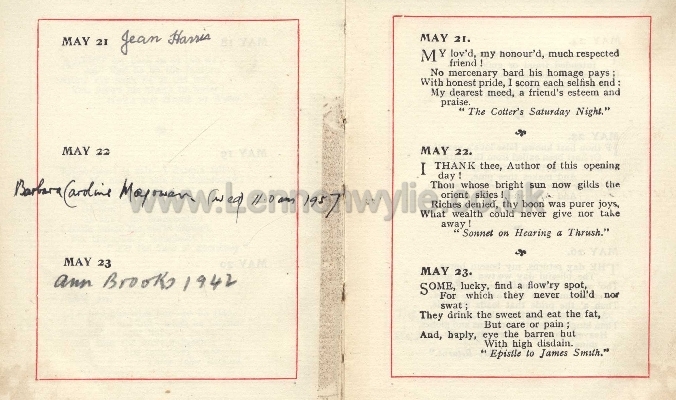 MAY 21 Jean Harris
MAY 22
Barbara Caroline (Wed) 11.0 am 1957
MAY 23
Ann Brooks 1942
MAY 21.
MY lov'd, my honour'd, much respected
friend!
No mercenary bard his homage pays;
With honest pride, I scorn each selfish end:
My dearest meed, a friend's esteem and
praise.
"The Cotter's Saturday Night."
MAY 22.
I THANK thee, Author of this opening
day!
Thou whose bright sun now gilds the
orient skies!
Riches denied, thy boon was purer joys,
What wealth could never give nor take
away!
"Sonnet on Hearing a Thrush."
MAY 23.
SOME, lucky, find a flow'ry spot,
For which they never toil'd nor
swat;
They drink the sweet and eat the fat,
But care or pain;
And, haply, eye the barren hut
With high disdain.
"Epistle to James Smith."
www.Lennonwylie.co.uk